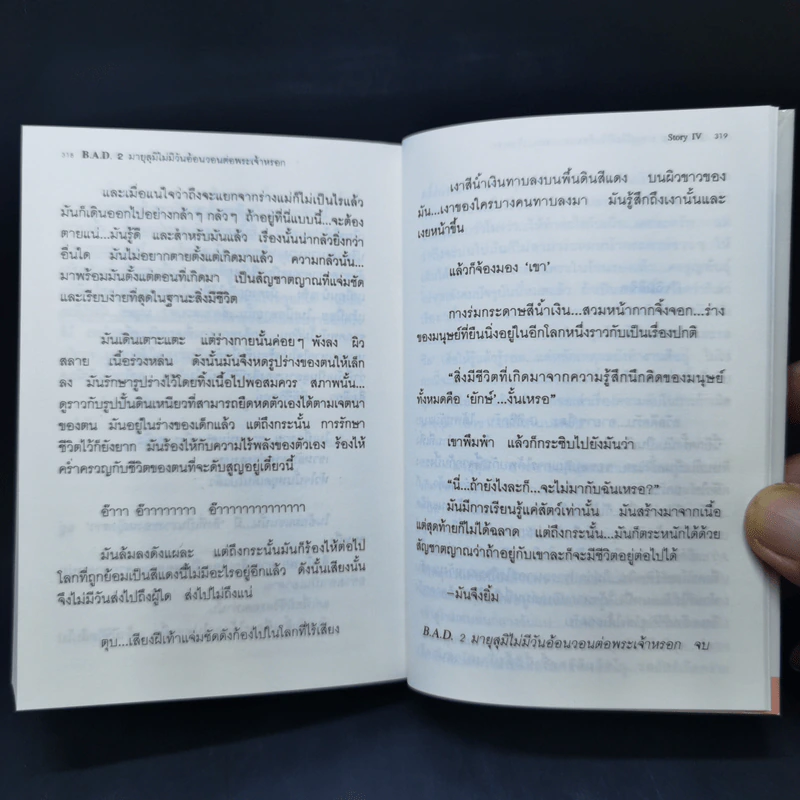 318 B.A.D. 2 มายุสุมิไม่มีวันอ้อนวอนต่อพระเจ้าหรอก
และเมื่อแน่ใจว่าถึงจะแยกจากร่างแม่ก็ไม่เป็นไรแล้ว
มันก็เดินออกไปอย่างกล้าๆ กลัวๆ ถ้าอยู่ที่นี่แบบนี้...จะต้อง
ตายแน่...มันรู้ดี และสำหรับมันแล้ว เรื่องนั้นน่ากลัวยิ่งกว่า
อื่นใด มันไม่อยากตายตั้งแต่เกิดมาแล้ว ความกลัวนั้น...
มาพร้อมมันตั้งแต่ตอนที่เกิดมา เป็นสัญชาตญาณที่แจ่มชัด
และเรียบง่ายที่สุดในฐานะสิ่งมีชีวิต
มันเดินเตาะแตะ แต่ร่างกายนั้นค่อยๆ พังลง ผิว
สลาย เนื้อร่วงหล่น ดังนั้นมันจึงหดรูปร่างของตนให้เล็ก
ลง มันรักษารูปร่างไว้โดยทิ้งเนื้อไปพอสมควร สภาพนั้น...
ดูราวกับรูปปั้นดินเหนียวที่สามารถยืดหดตัวเองได้ตามเจตนา
ของตน มันอยู่ในร่างของเด็กแล้ว แต่ถึงกระนั้น การรักษา
ชีวิตไว้ก็ยังยาก มันร้องไห้กับความไร้พลังของตัวเอง ร้องไห้
คร่ำครวญกับชีวิตของตนที่จะดับสูญอยู่เดี๋ยวนี้
อ๊าาา อ๊าาาาาาาาา อ๊าาาาาาาาาาาาาา
มันล้มลงดังแผละ แต่ถึงกระนั้นมันก็ร้องไห้ต่อไป
โลกที่ถูกย้อมเป็นสีแดงนี้ไม่มีอะไรอยู่อีกแล้ว ดังนั้นเสียงนั้น
จึงไม่มีวันส่งไปถึงผู้ใด ส่งไปไม่ถึงแน่
ตุบ...เสียงฝีเท้าแจ่มชัดดังก้องไปในโลกที่ไร้เสียง
Story IV 319
เงาสีน้ำเงินทาบลงบนพื้นดินสีแดง บนผิวขาวของ
มัน...เงาของใครบางคนทาบลงมา มันรู้สึกถึงเงานั้นและ
เงยหน้าขึ้น
แล้วก็จ้องมอง ‘เขา’
กางร่มกระดาษสีน้ำเงิน...สวมหน้ากากจิ้งจอก...ร่าง
ของมนุษย์ที่ยืนนิ่งอยู่ในอีกโลกหนึ่งราวกับเป็นเรื่องปกติ
“สิ่งมีชีวิตที่เกิดมาจากความรู้สึกนึกคิดของมนุษย์
ทั้งหมดคือ ‘ยักษ์’...งั้นเหรอ”
เขาพึมพำ แล้วก็กระซิบไปยังมันว่า
“นี่...ถ้ายังไงละก็...จะไม่มากับฉันเหรอ?”
มันมีการเรียนรู้แค่สัตว์เท่านั้น มันสร้างมาจากเนื้อ
แต่สุดท้ายก็ไม่ได้ฉลาด แต่ถึงกระนั้น...มันก็ตระหนักได้ด้วย
สัญชาตญาณว่าถ้าอยู่กับเขาละก็จะมีชีวิตอยู่ต่อไปได้
–มันจึงยิ้ม
B.A.D. 2 มายุสุมิไม่มีวันอ้อนวอนต่อพระเจ้าหรอก จบ